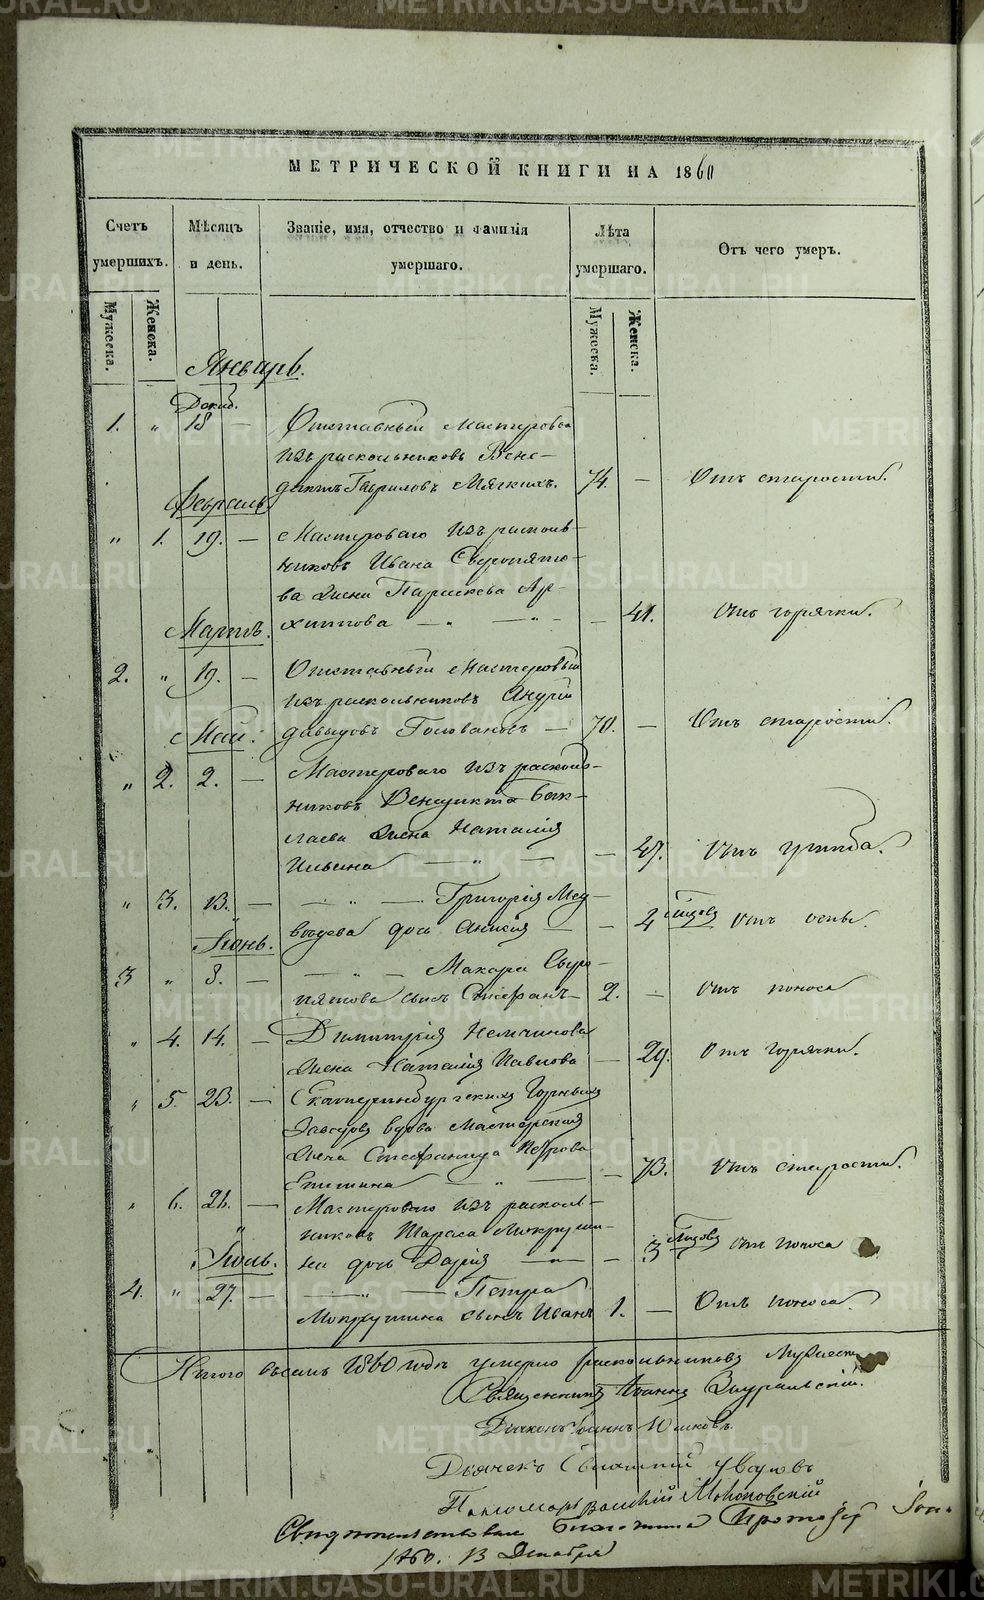 МЕТРИЧЕСКОЙ КНИГИ НА 1860
Счетъ умершихъ.
Мужеска.
Женска.
Мѣсяцъ и день.
Званіе, имя, отчество и фамилія умершаго.
Лѣта умершаго.
Мужеска.
Женска.
Отъ чего умеръ.
Январь.
1. „ 18 — Отставный Мастеровой
изъ раскольниковъ Вене-
диктъ Гавриловъ Мягкихъ. 74. — Отъ старости.
Февраль
„ 1. 19. — Мастероваго изъ расколь-
никовъ Ивана Сыропято-
ва жена Параскева Ар-
хипова — „ — „ — 41. Отъ горячки.
Мартъ.
2. „ 19. — Отставный Мастеровый
изъ раскольниковъ Андрей
Давыдовъ Головановъ — 70. — Отъ старости.
Май.
„ 2. 2. — Мастероваго изъ расколь-
никовъ Венедикта Бак-
лаева жена Наталія
Ильина — „ — — 47. Отъ ушиба.
„ 3. 13. — — „ — Григорія Мед-
вѣдева дочь Анисія — — 2 Отъ оспы.
Іюнь.
3 „ 8. — — „ — Макара Сыро-
пятова сынъ Стефанъ — 2. — Отъ поноса
„ 4. 14. — Димитрія Немчинова
жена Наталія Павлова — 29. Отъ горячки.
„ 5. 23. — Екатеринбургскихъ Горныхъ
Заводовъ вдова Мастерская
жена Стефанида Петрова
— „ — — 73. Отъ старости.
„ 6. 26. — Мастероваго изъ расколь-
никовъ Тараса Мокруши-
на дочь Дарія — „ — — 3 Отъ поноса
Іюль.
4. „ 27. — — „ — Петра
Мокрушина сынъ Иванъ 1. — Отъ поноса.
Итого въ семъ 1860 годѣ умерло раскольниковъ Мужеска
Священникъ Іоаннъ
Діаконъ Іоаннъ
Дьячекъ
Пономарь Василій
Свидѣтельствовалъ Благочинный Протоіерей
1860. 13 Декабря
METRIKI.GASO-URAL.RU